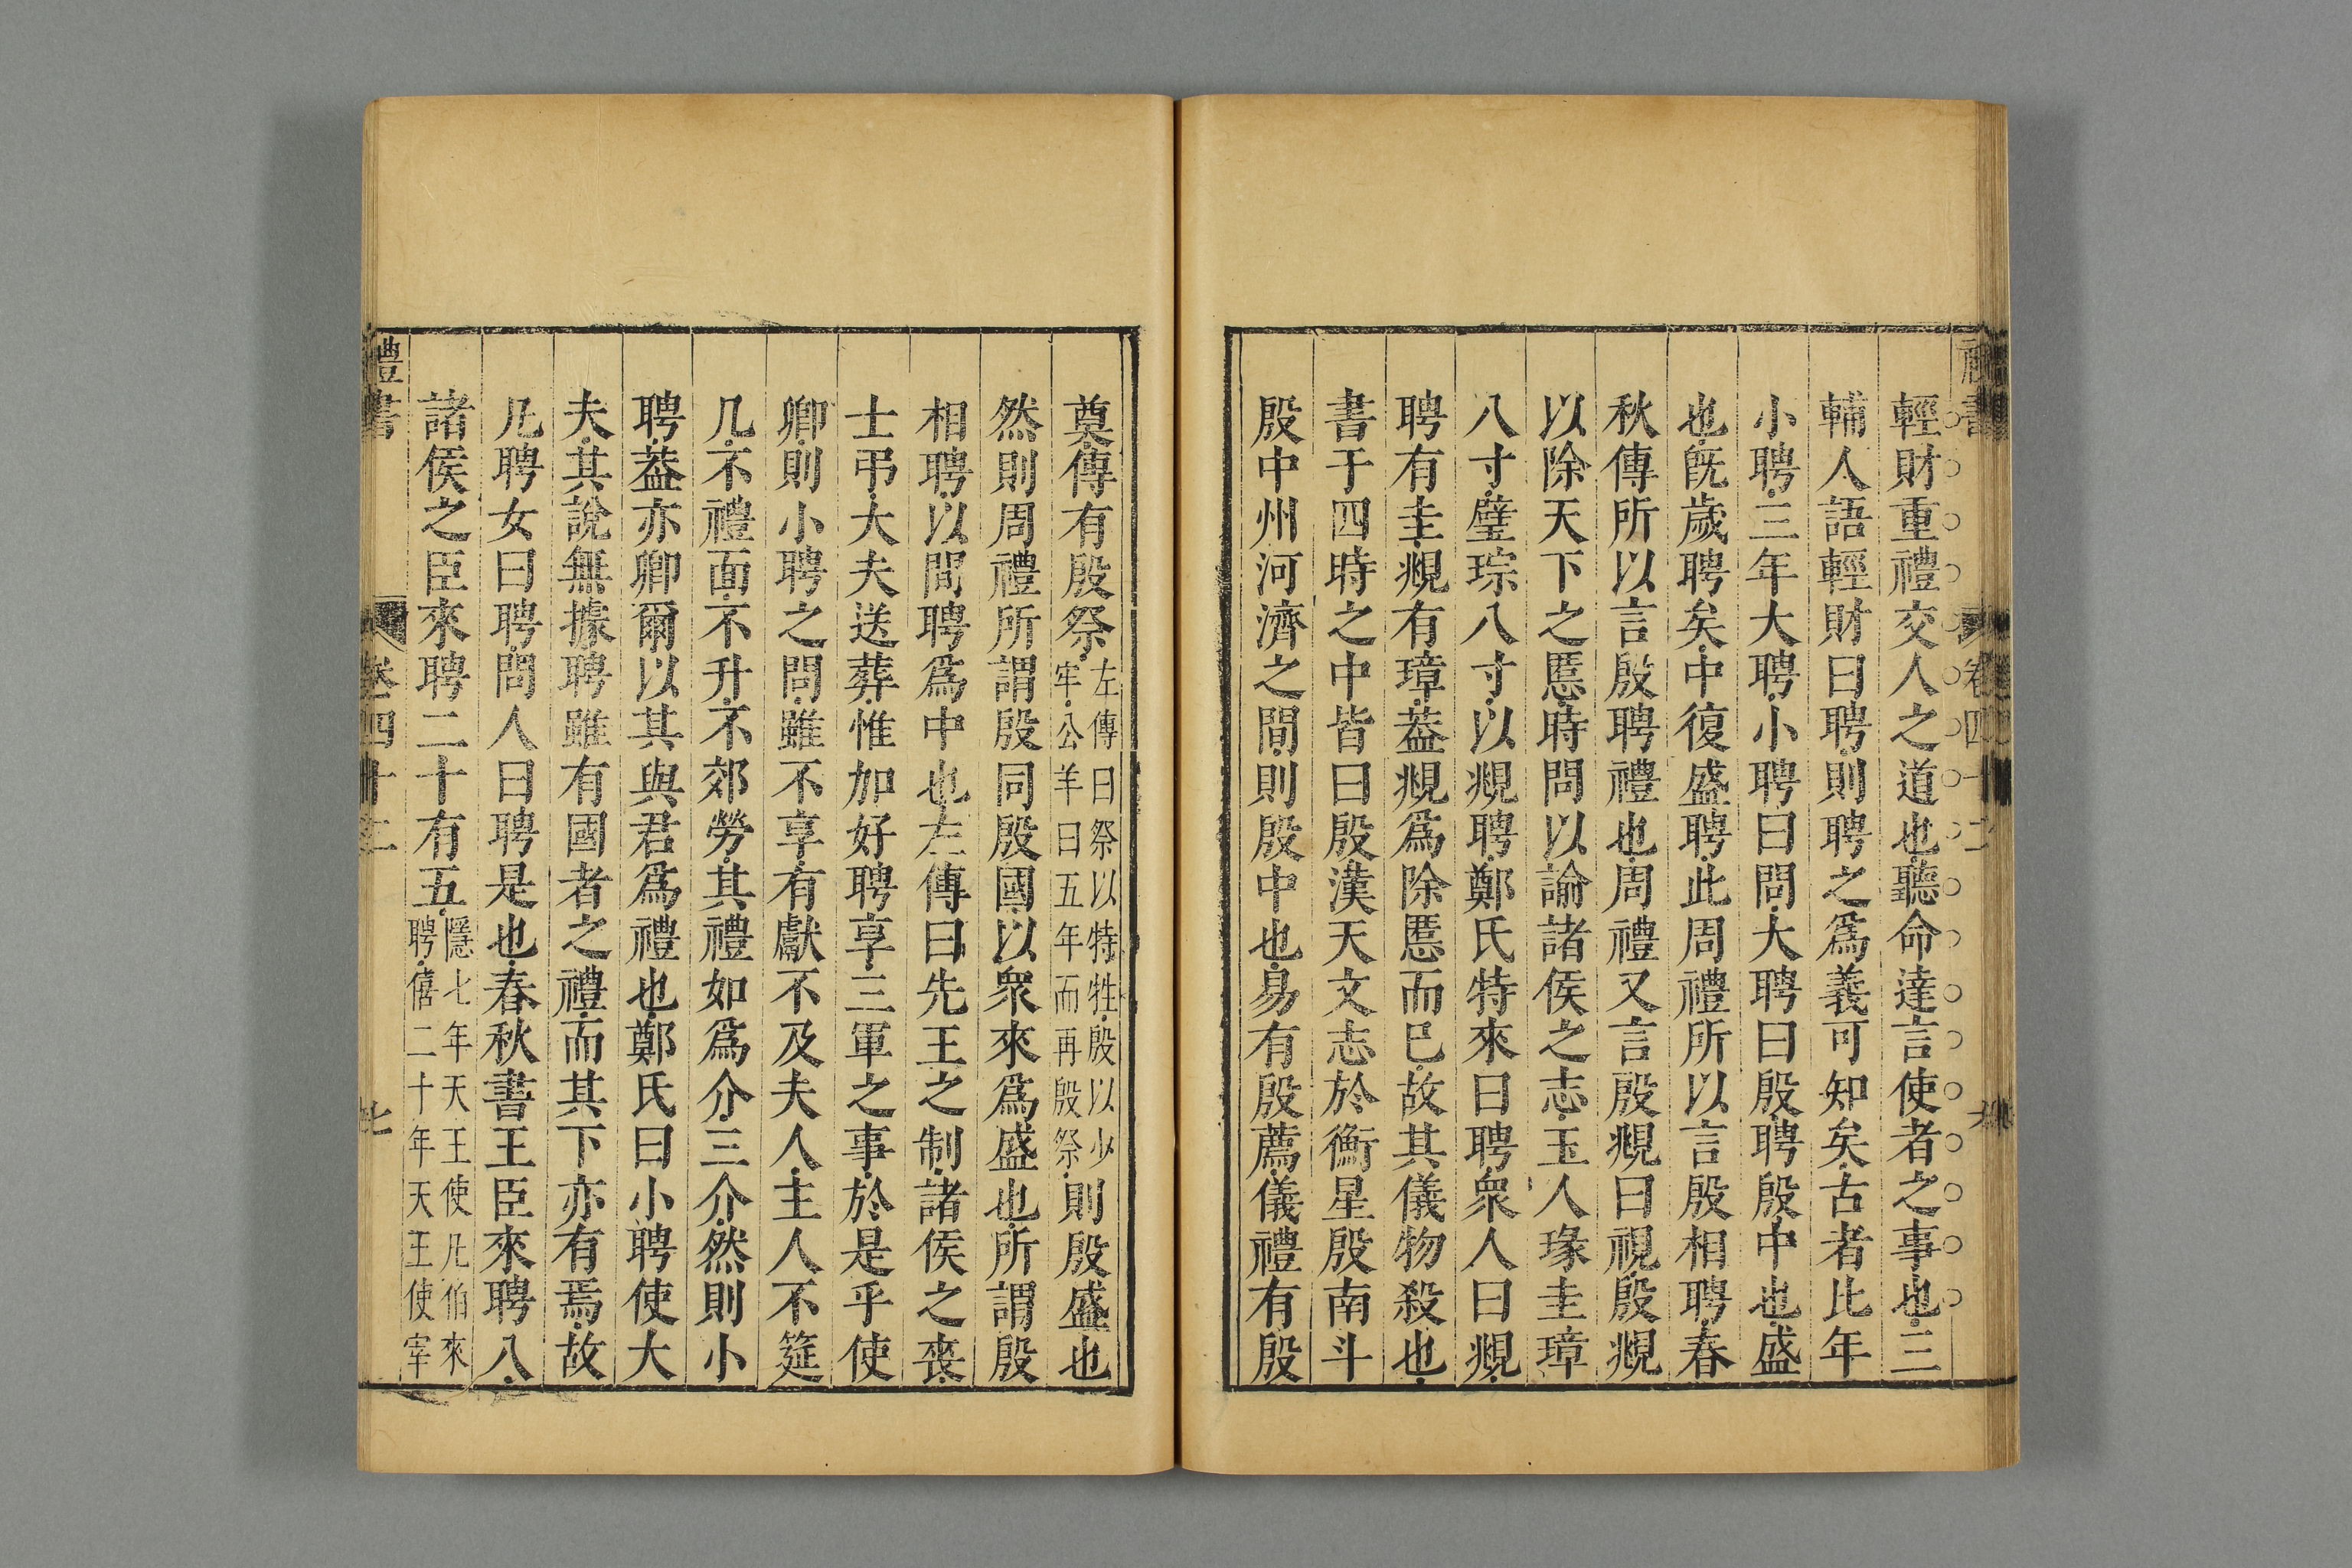 輕財重禮交人之道也聽命達言使者之事也三
輔人語輕財曰聘則聘之爲義可知矣古者比年
小聘三年大聘小聘曰問大聘曰殷聘殷中也盛
也旣歲聘矣中復盛聘此周禮所以言殷相聘春
秋傳所以言殷聘禮也周禮又言殷覜曰視殷覜
以除天下之慝時問以諭諸侯之志玉人瑑圭璋
八寸璧琮八寸以覜聘鄭氏特來曰聘衆人曰覜
聘有圭覜有璋葢覜爲除慝而巳故其儀物殺也
書于四時之中皆曰殷漢天文志於衡星殷南斗
殷中州河濟之間則殷中也易有殷薦儀禮有殷
奠傳有殷祭左傳曰祭以特牲殷以少牢公羊曰五年而再殷祭則殷盛也
然則周禮所謂殷同殷國以衆來爲盛也所謂殷
相聘以間聘爲中也左傳曰先王之制諸侯之喪
士弔大夫送葬惟加好聘享三軍之事於是乎使
卿則小聘之問雖不享有獻不及夫人主人不筵
几不禮面不升不郊勞其禮如爲介三介然則小
聘葢亦卿爾以其與君爲禮也鄭氏曰小聘使大
夫其說無據聘雖有國者之禮而其下亦有焉故
凡聘女曰聘問人曰聘是也春秋書王臣來聘八
諸侯之臣來聘二十有五隱七年天王使凡伯來聘僖二十年天王使宰
禮書
卷四十二